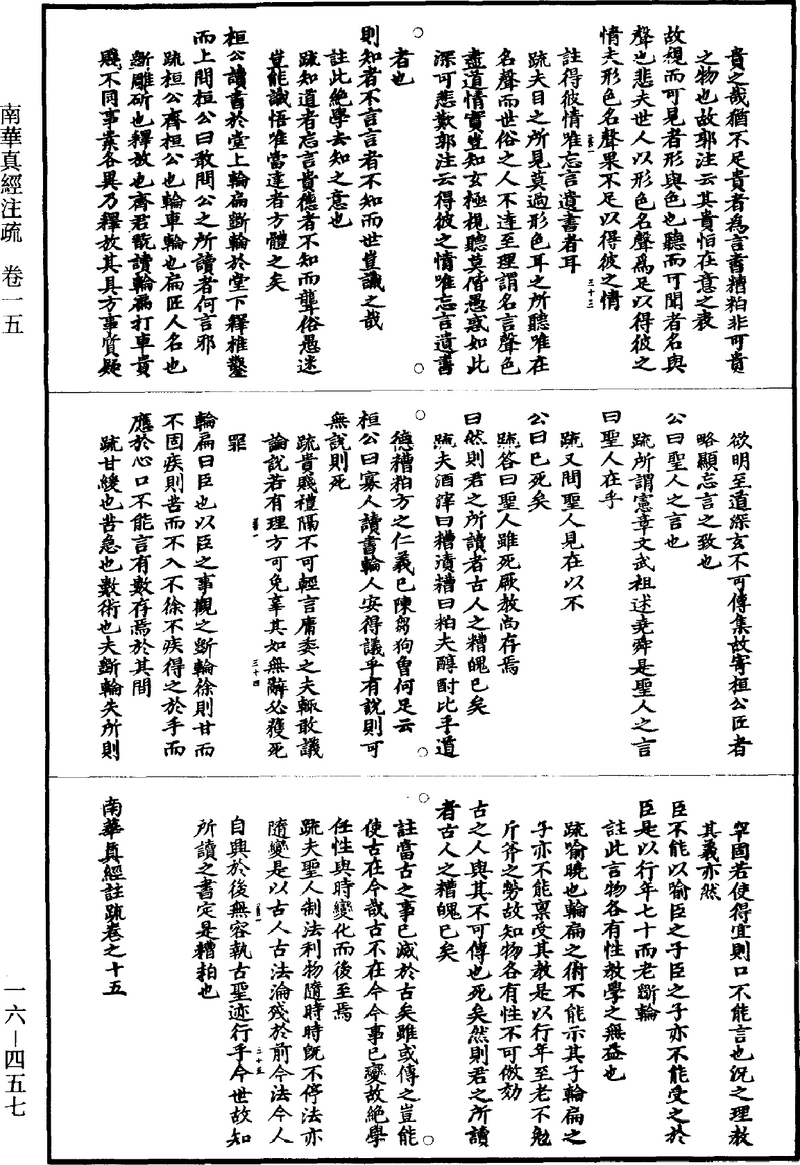 貴之哉猶不足貴者為言書糟粕非可貴
之物也故郭注云其貴恒在意之表
故視而可見者形與色也聽而可聞者名與
聲也悲夫世人以形色名聲為足以得彼之
情夫形色名聲果不足以得彼之情
註得彼情唯忘言遺書者耳
疏夫目之所見莫過形色耳之所聽唯在
名聲而世俗之人不達至理謂名言聲色
盡道情實豈知玄極視聽莫偕愚惑如此
深可悲歎郭注云得彼之情唯忘言遺書
者也
則知者不言言者不知而世豈識之哉
註此絕學去知之意也
疏知道者忘言貴德者不知而聾俗愚迷
豈能識悟唯當達者方體之矣
桓公讀書於堂上輪扁斲輪於堂下釋椎鑿
而上問桓公曰敢問公之所讀者何言邪
疏桓公齊桓公也輪車輪也扁匠人名也
斲雕斫也釋放也齊君既讀輪扁打車貴
賤不同事業各異乃釋放其具方事質疑
欲明至道深玄不可傳集故寄桓公匠者
略顯忘言之致也
公曰聖人之言也
疏所謂憲章文武祖述堯舜是聖人之言
曰聖人在乎
疏又問聖人見在以不
公曰已死矣
疏答曰聖人雖死厥教尚存焉
曰然則君之所讀者古人之糟魄已矣
疏夫酒滓曰糟漬糟曰粕夫醇酎比乎道
德糟粕方之仁義已陳芻狗曾何足云
桓公曰寡人讀書輪人安得議乎有說則可
無說則死
疏貴賤禮隔不可輕言庸委之夫輒敢議
論說若有理方可免辜其如無辭必獲死
罪
輪扁曰臣也以臣之事觀之斲輪徐則甘而
不固疾則苦而不入不徐不疾得之於手而
應於心口不能言有數存焉於其間
疏甘緩也苦急也數術也夫斲輪失所則
牢固若使得宜則口不能言也況之理教
其義亦然
臣不能以喻臣之子臣之子亦不能受之於
臣是以行年七十而老斲輪
註此言物各有性教學之無益也
疏喻曉也輪扁之術不能示其子輪扁之
子亦不能稟受其教是以行年至老不勉
斤斧之勞故知物各有性不可倣効
古之人與其不可傳也死矣然則君之所讀
者古人之糟魄已矣
註當古之事已滅於古矣雖或傳之豈能
使古在今哉古不在今今事已變故絕學
任性與時變化而後至焉
疏夫聖人制法利物隨時時既不停法亦
隨變是以古人古法淪殘於前今法今人
自興於後無容執古聖迹行乎今世故知
所讀之書定是糟粕也
南華真經註疏卷之十五
南華真經注疏　卷一五
一六—四五七
三十三
三十四
三十五